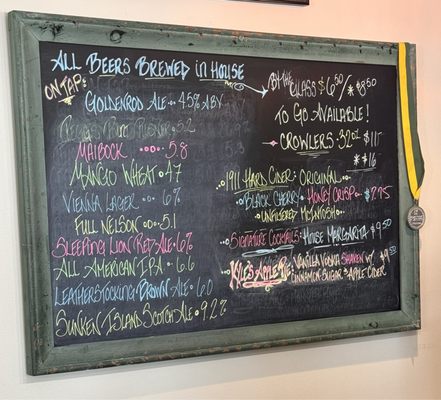 ALL BEERS BREWED IN HOUSE
ON TAP:
GOLDENROD ALE 4.5% ABV
5.2
MAIBOCK 5.8
MANGO WHEAT 4.7
VIENNA LAGER 6%
FULL NELSON 5.1
SLEEPING LION RED ALE 6%
ALL AMERICAN IPA 6.6
LEATHERSTOCKING BROWN ALE 6.0
SUNKEN ISLAND SCOTCH ALE 9.2%
BY THE GLASS $6.50/*$8.50
TO GO AVAILABLE!
CROWLERS 32oz $11
*$16
1911 HARD CIDER: ORIGINAL
BLACK CHERRY HONEY CRISP $7.75
UNFILTERED MCINTOSH
SIGNATURE COCKTAILS: HOUSE MARGARITA $9.50
APPLE PIE: VANILLA VODKA SHAKEN W/ $9.50
CINNAMON SUGAR & APPLE CIDER